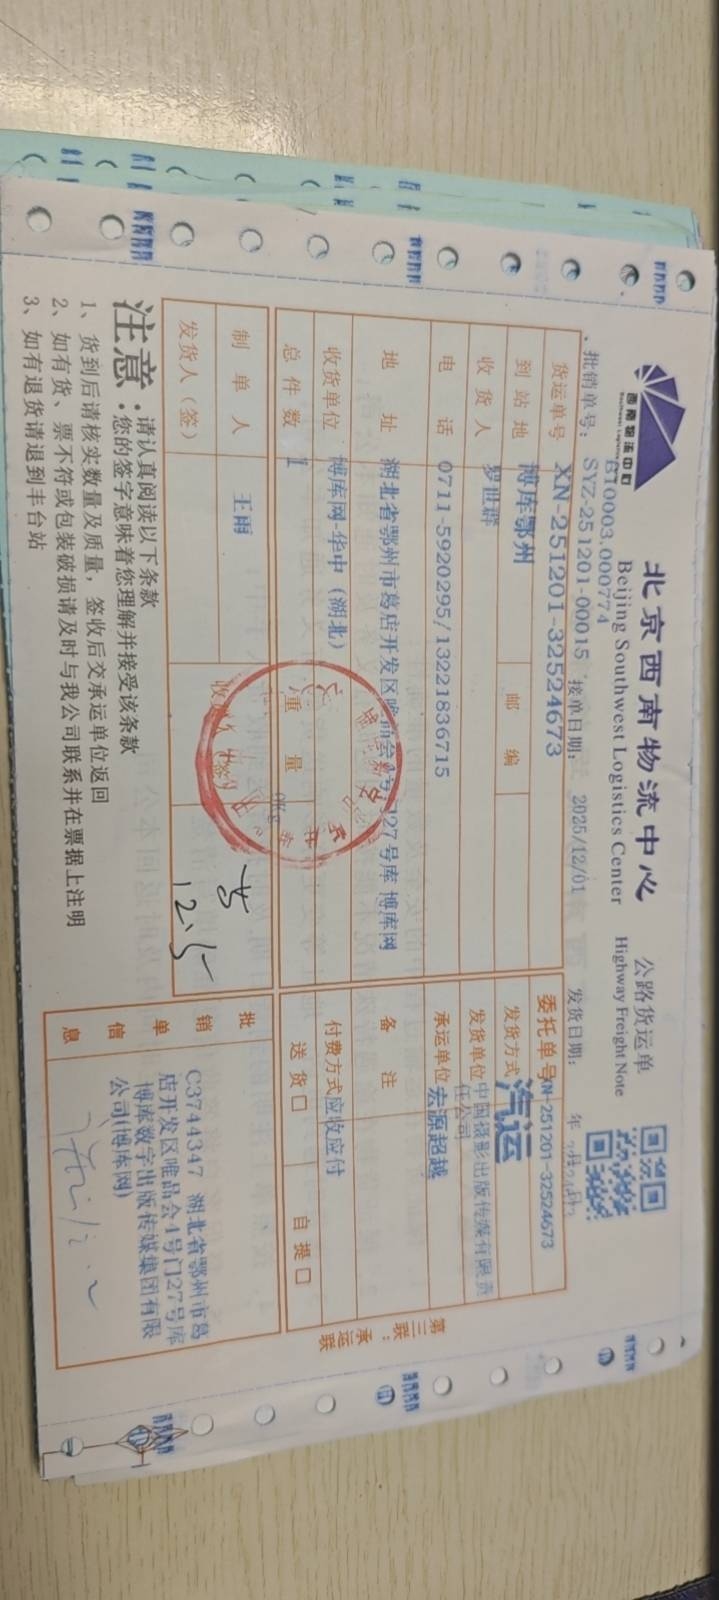 西南物流中心
北京西南物流中心
Beijing Southwest Logistics Center
公路货运单
Highway Freight Note
B10003.000774
批销单号: SYZ-251201-00015 接单日期: 2025/12/01 发货日期: 年
货运单号 XN-251201-32524673 委托单号 N-251201-32524673
到站地 博库鄂州 邮编 发货方式 汽运
收货人 罗世群 发货单位 中国摄影出版传媒有限责任公司
电话 0711-5920295/13221836715 承运单位 宏源超越
地址 湖北省鄂州市葛店开发区唯品会4号门27号库 博库网 备注
收货单位 博库网-华中(湖北) 付费方式 应收应付
总件数 1 重量 0Kg 送货□ 自提□
制单人 王雨
发货人(签) 收货人(签)
12.5
批销单信息 C3744347 湖北省鄂州市葛
店开发区唯品会4号门27号库
博库数字出版传媒集团有限
公司(博库网)
第三联:承运联
注意:
请认真阅读以下条款
您的签字意味着您理解并接受该条款
1、货到后请核实数量及质量,签收后交承运单位返回
2、如有货、票不符或包装破损请及时与我公司联系并在票据上注明
3、如有退货请退到丰台站